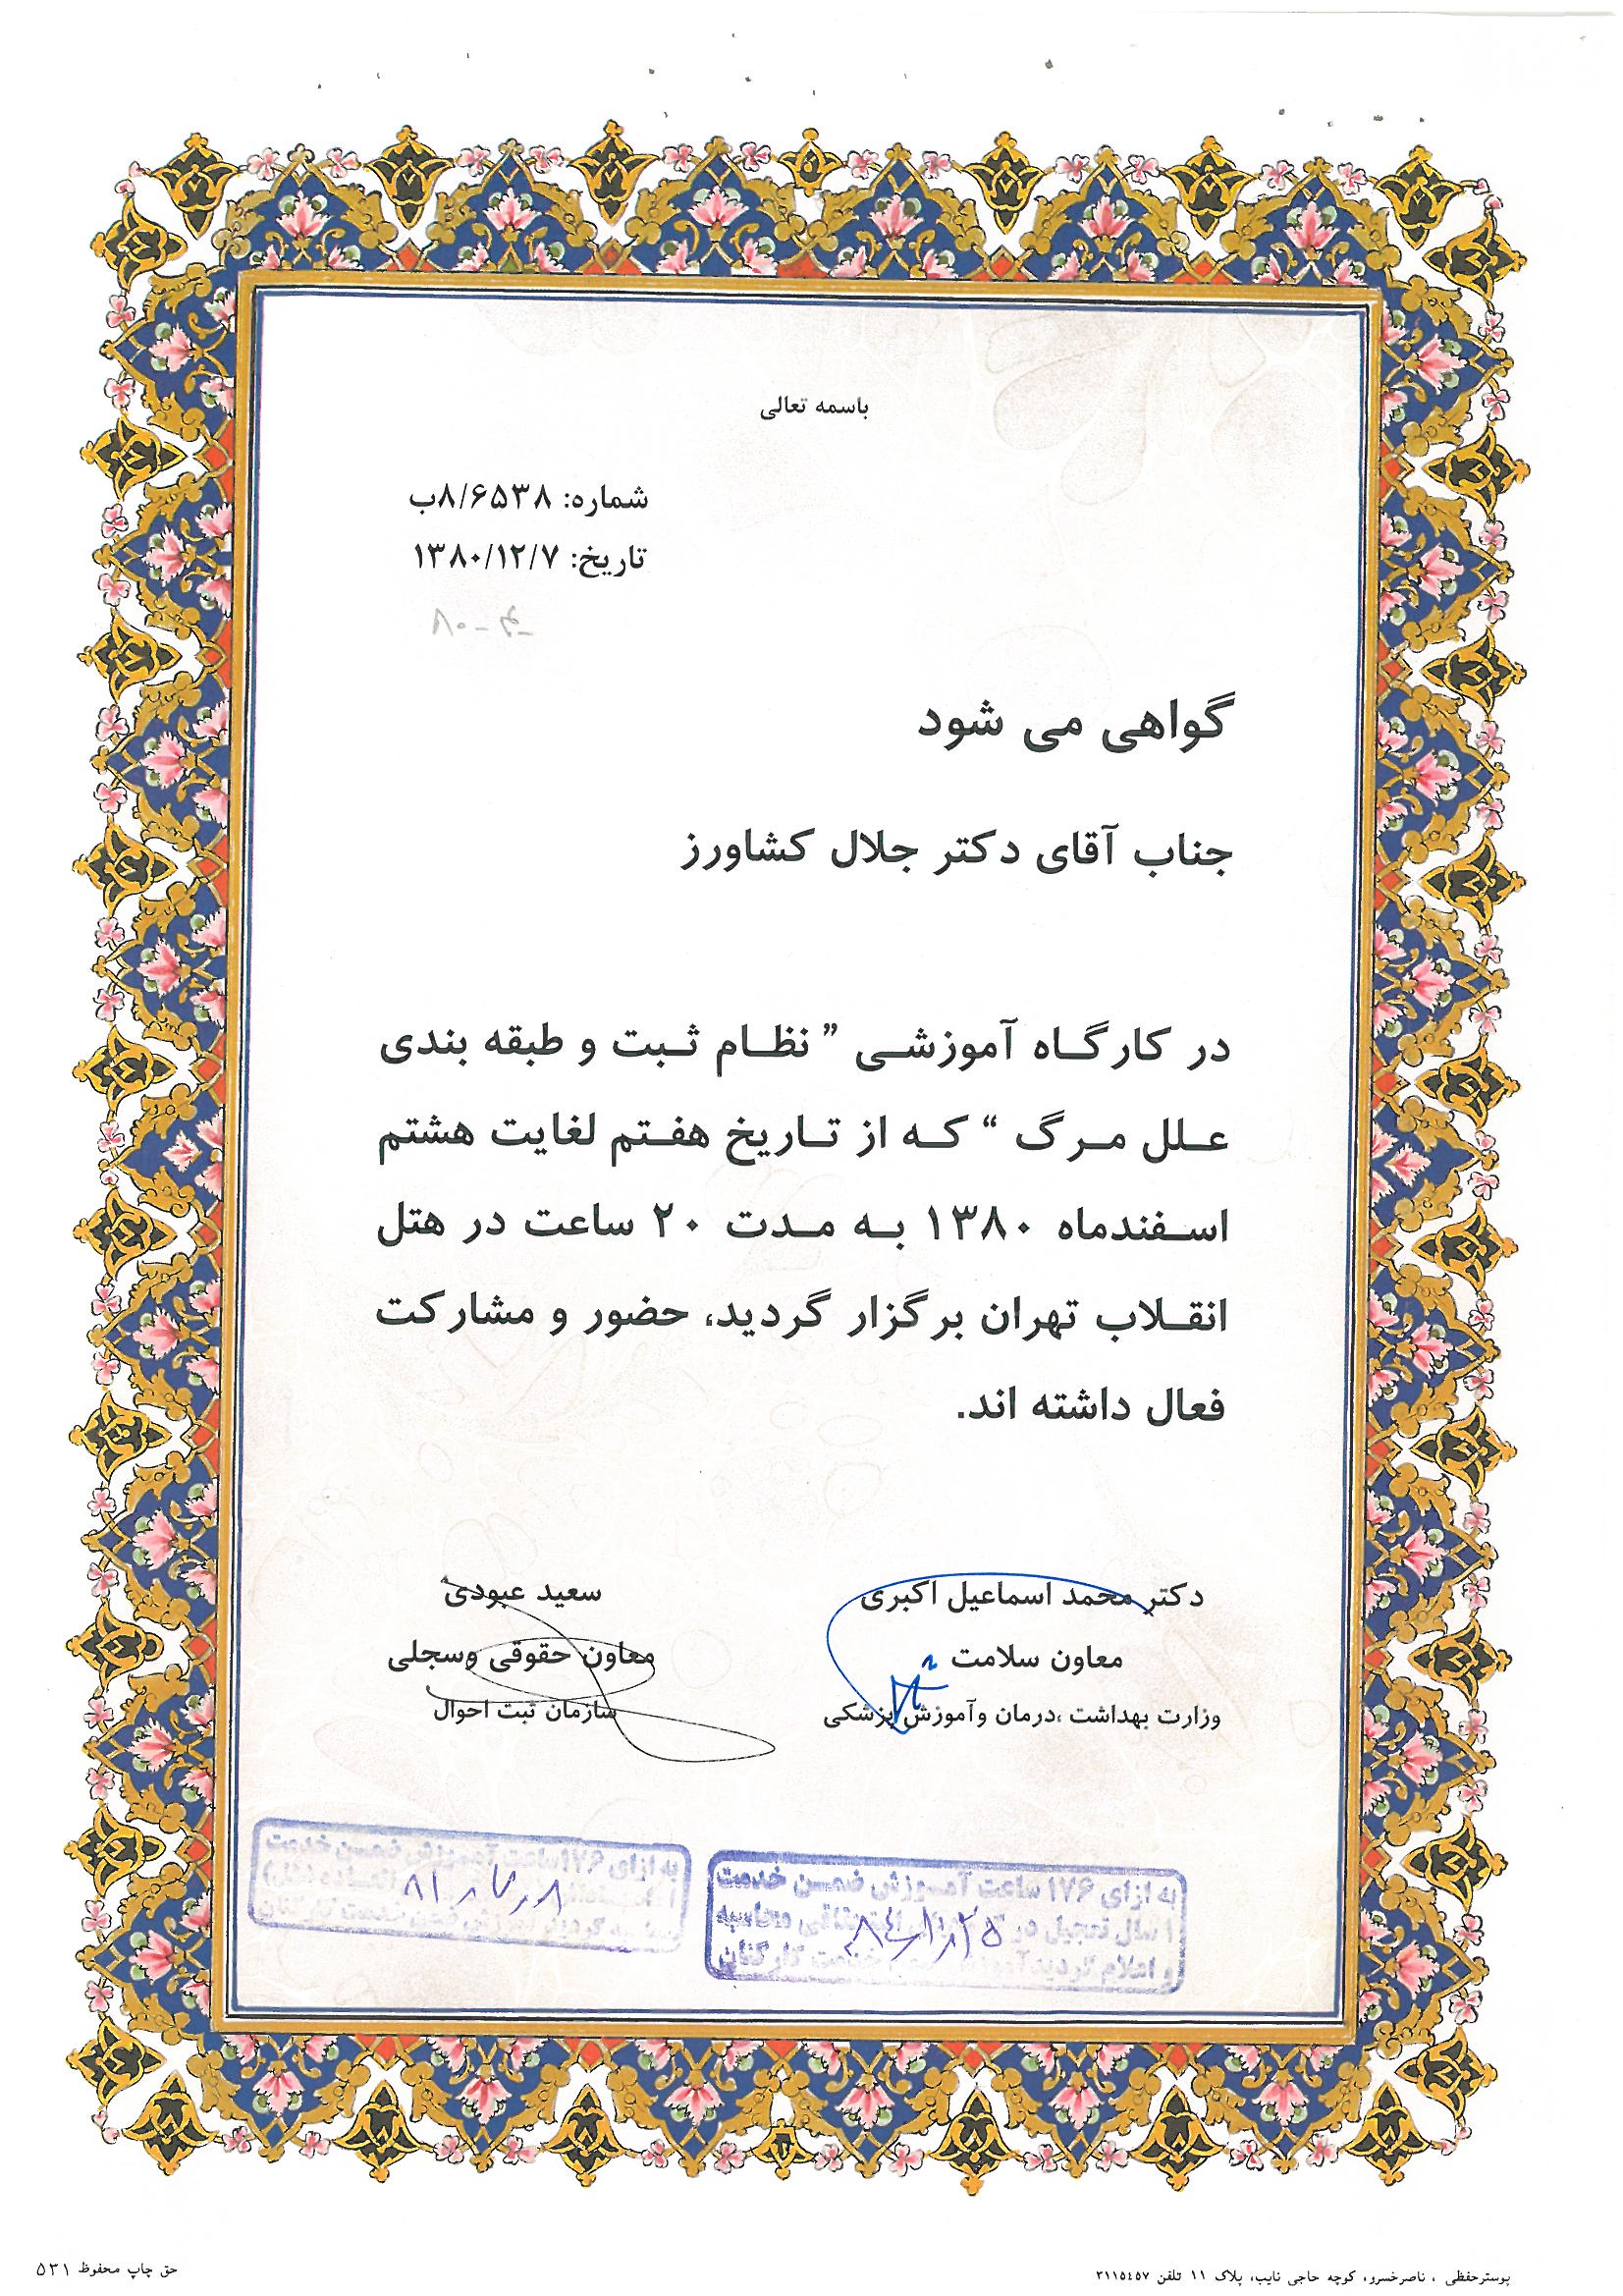 باسمه تعالی
شماره: ۸/۶۵۳۸ب
تاریخ: ۱۳۸۰/۱۲/۷
گواهی می شود
جناب آقای دکتر جلال کشاورز
در کارگاه آموزشی " نظام ثبت و طبقه بندی
علل مرگ " که از تاریخ هفتم لغایت هشتم
اسفندماه ۱۳۸۰ به مدت ۲۰ ساعت در هتل
انقلاب تهران برگزار گردید، حضور و مشارکت
فعال داشته اند.
دکتر محمد اسماعیل اکبری
معاون سلامت
وزارت بهداشت ،درمان وآموزش پزشکی
سعید عبودی
معاون حقوقی وسجلی
سازمان ثبت احوال
به ازای ۱۷۶ ساعت آموزش ضمن خدمت
۱ سال تعجیل در محاسبه
و اعلام گردید خدمت کارکنان
به ازای ۱۷۶ ساعت آموزش ضمن خدمت
پوسترحفظی ، ناصرخسرو، کوچه حاجی نایب، پلاک ۱۱ تلفن ۳۱۱۵٤٥۷
حق چاپ محفوظ ۵۳۱